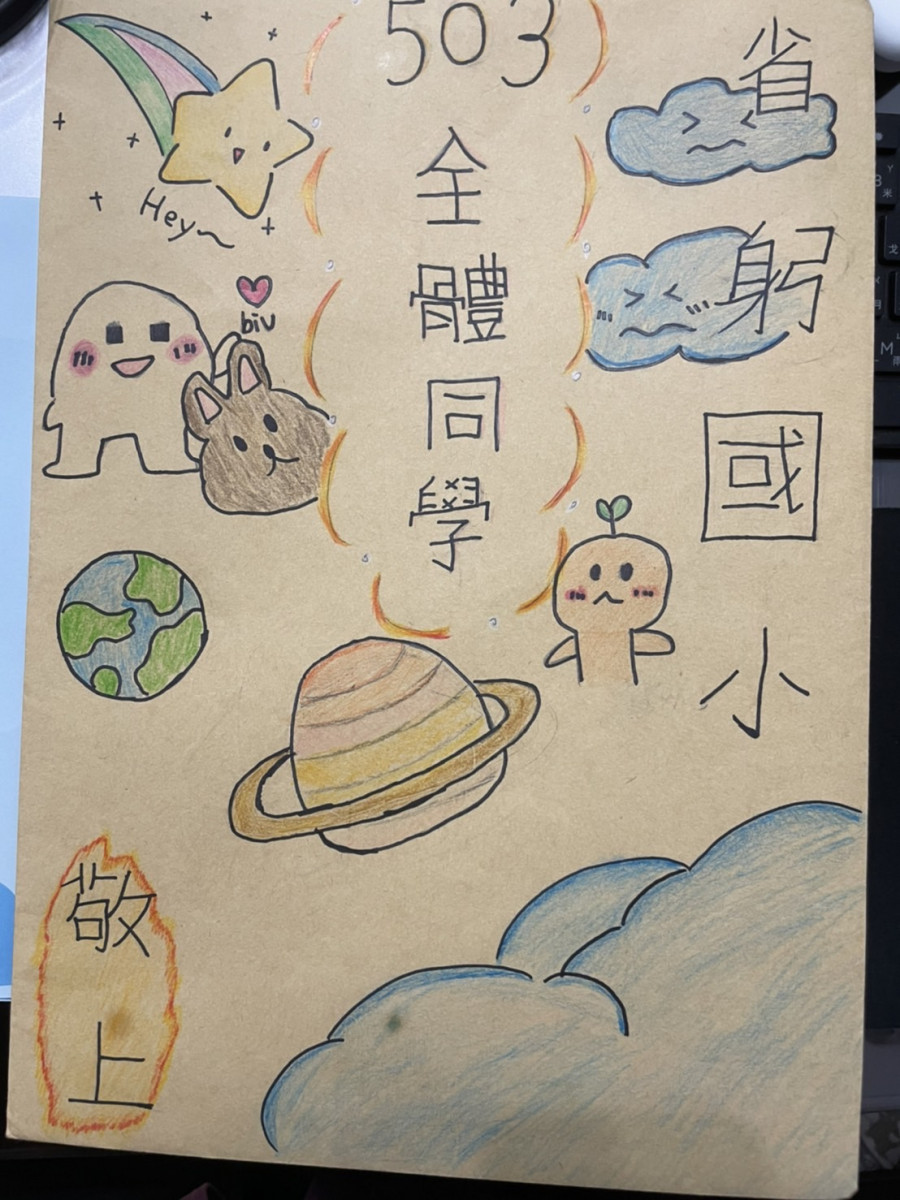 省躬國小
503
全體同學
敬上
Hey~
biu